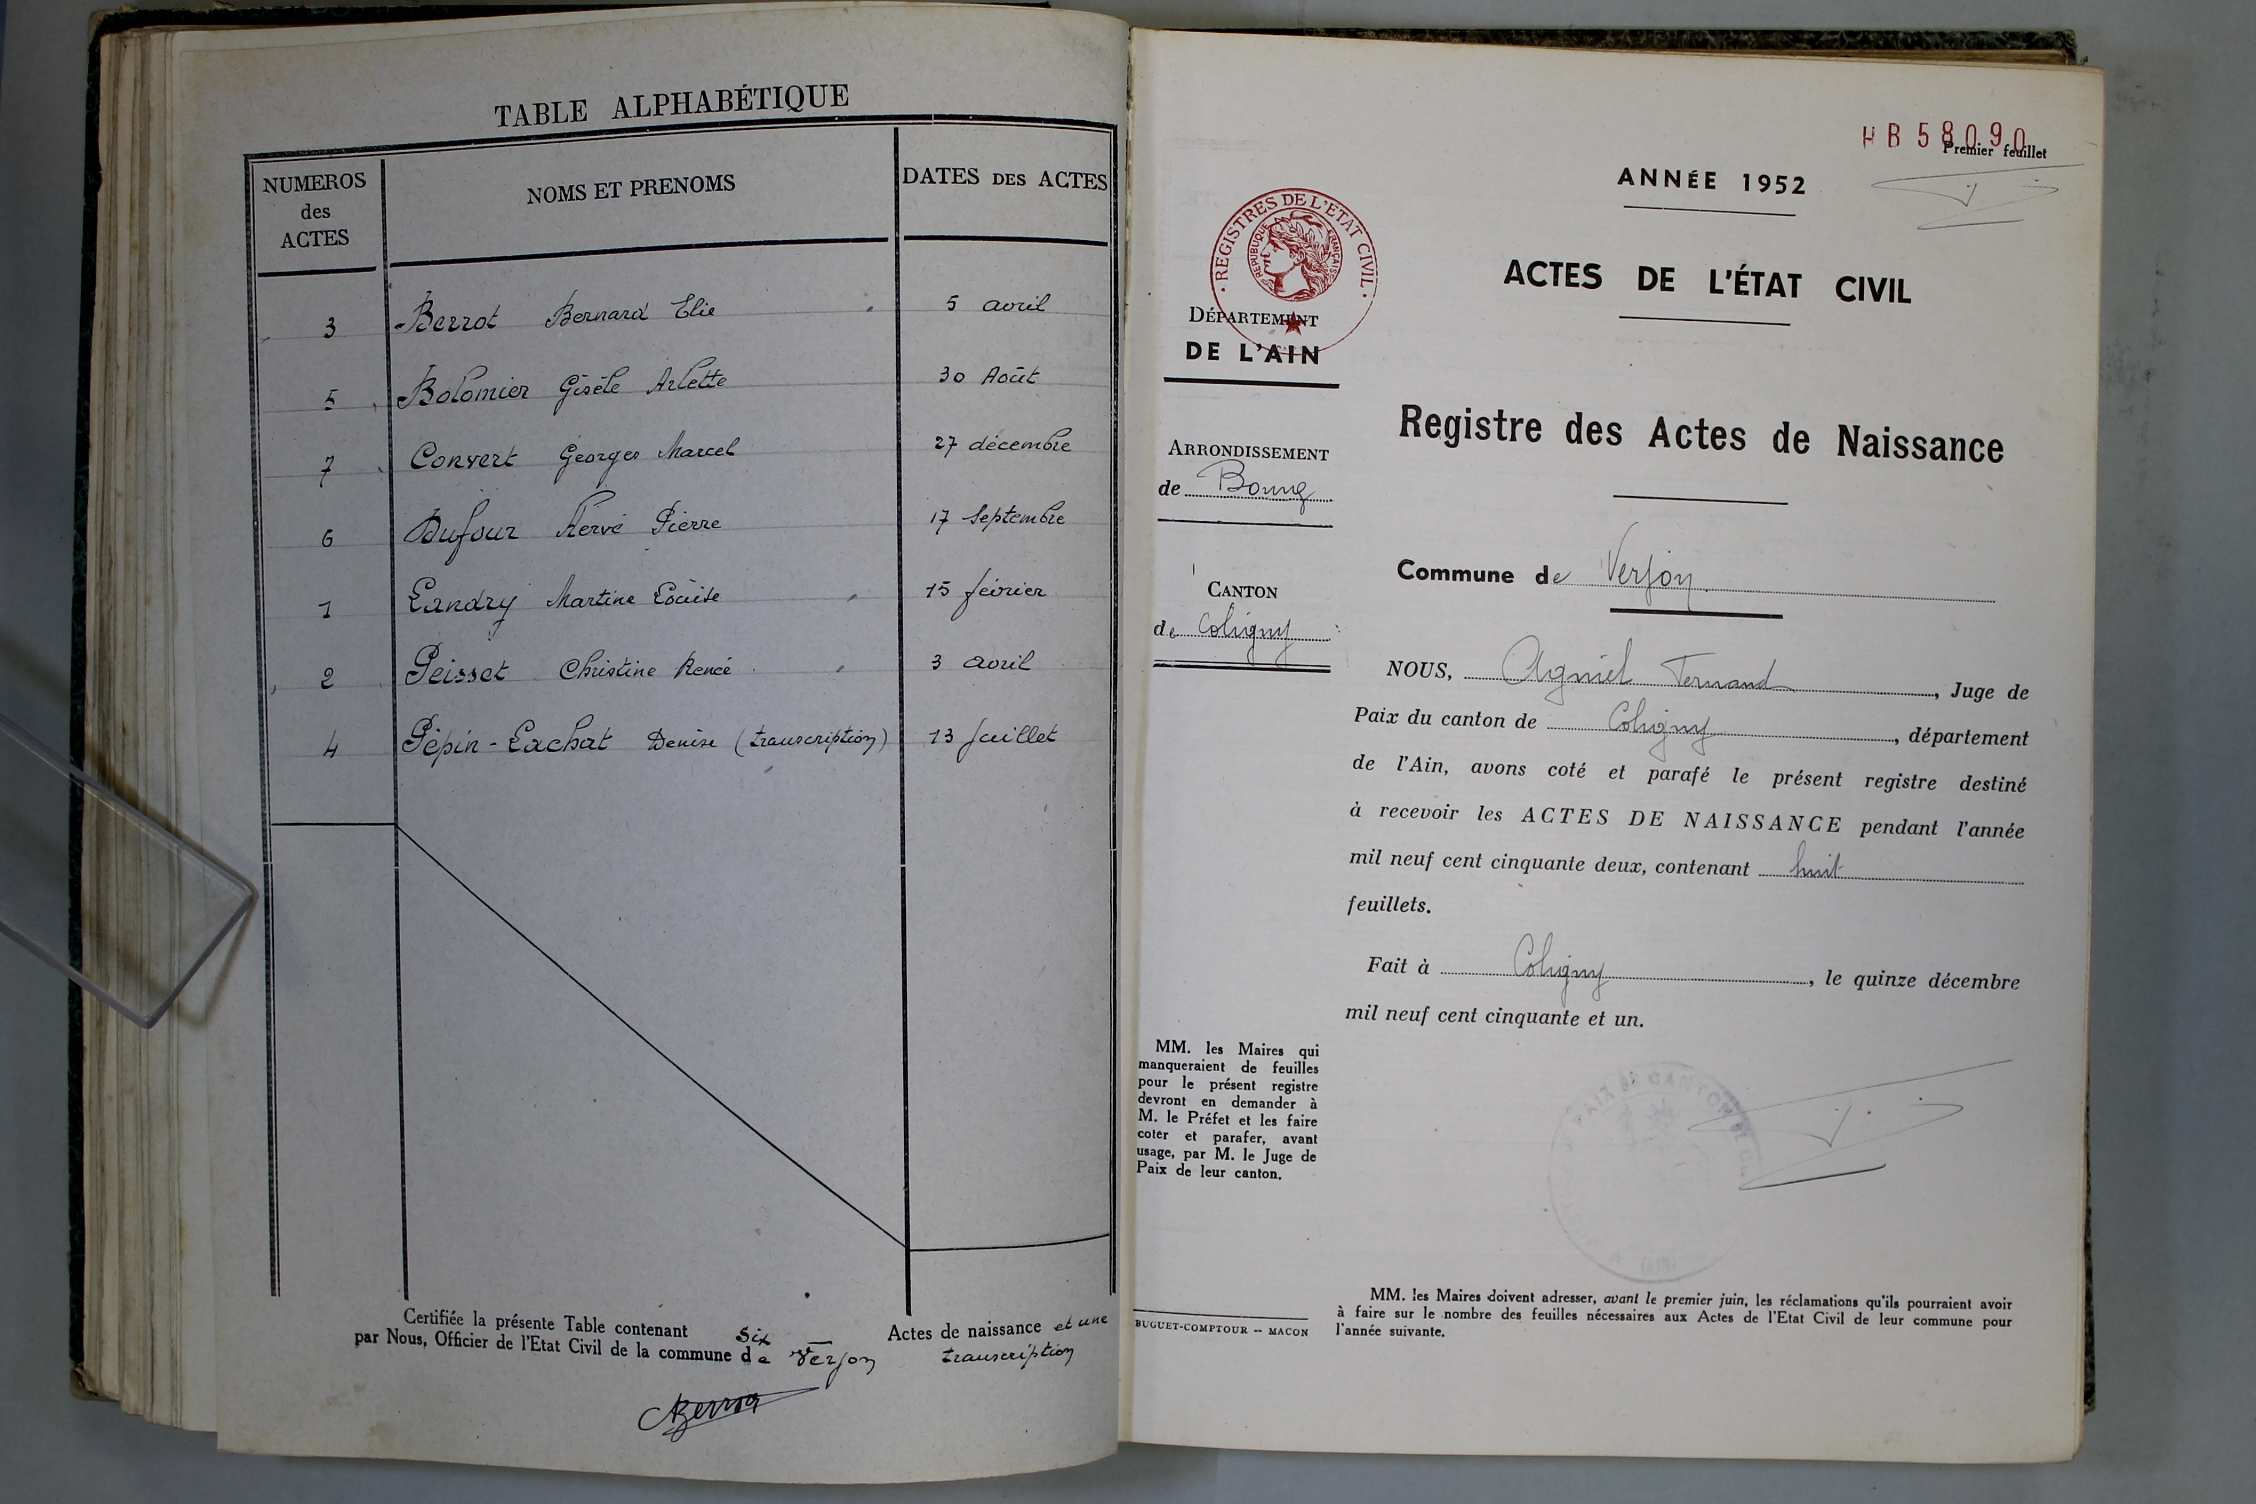 TABLE ALPHABÉTIQUE
NUMEROS des ACTES NOMS ET PRENOMS DATES DES ACTES
3 Berrot Bernard Elie 5 avril
5 Bolomier Gisèle Arlette 30 Août
7 Convert Georges Marcel 27 décembre
6 Dufour Hervé Pierre 17 Septembre
1 Landry Martine Louise 15 février
2 Peisset Christine Renée 3 avril
4 Pépin-Lachat Denise (transcription) 13 Juillet
Certifiée la présente Table contenant six Actes de naissance et une
par Nous, Officier de l'Etat Civil de la commune de Verjon transcription
HB58090
Premier feuillet
ANNÉE 1952
REGISTRES DE L'ETAT CIVIL
REPUBLIQUE FRANÇAISE
ACTES DE L'ÉTAT CIVIL
DÉPARTEMENT
DE L'AIN
Registre des Actes de Naissance
ARRONDISSEMENT
de Bourg
Commune de Verjon
CANTON
de Coligny
NOUS, Agniel Fernand, Juge de
Paix du canton de Coligny, département
de l'Ain, avons coté et parafé le présent registre destiné
à recevoir les ACTES DE NAISSANCE pendant l'année
mil neuf cent cinquante deux, contenant huit
feuillets.
Fait à Coligny, le quinze décembre
mil neuf cent cinquante et un.
MM. les Maires qui
manqueraient de feuilles
pour le présent registre
devront en demander à
M. le Préfet et les faire
coter et parafer, avant
usage, par M. le Juge de
Paix de leur canton.
BUGUET-COMPTOUR -- MACON
MM. les Maires doivent adresser, avant le premier juin, les réclamations qu'ils pourraient avoir
à faire sur le nombre des feuilles nécessaires aux Actes de l'Etat Civil de leur commune pour
l'année suivante.